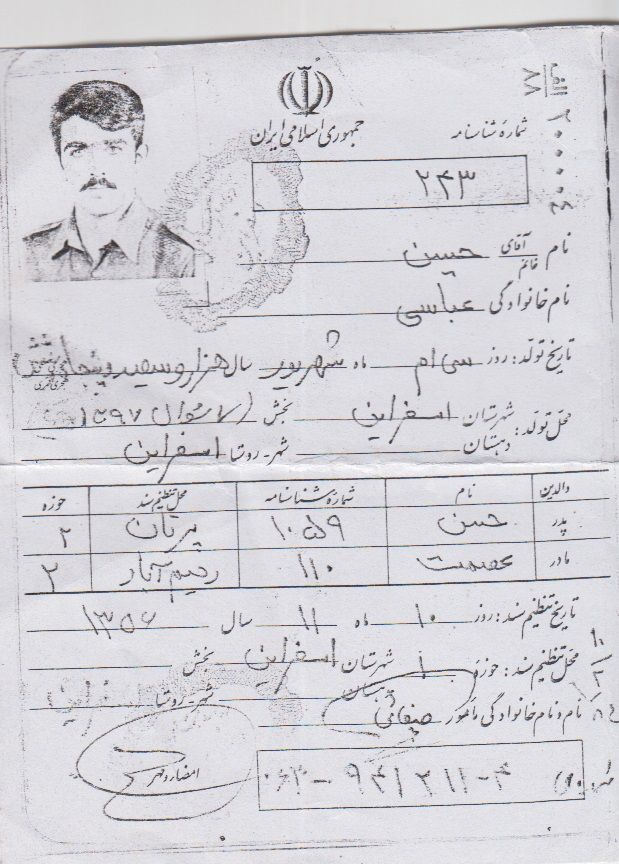 جمهوری اسلامی ایران
شمارهٔ شناسنامه
۲۴۳
نام آقای خانم حسین
نام خانوادگی عباسی
تاریخ تولد: روز سی‌ام ماه شهریور سال هزار و سیصد و پنجاه
محل تولد: شهرستان اسفراین بخش (۷ شوال ۱۳۹۷
دهستان شهر-روستا اسفراین
والدین نام شمارهٔ شناسنامه محل تنظیم سند حوزه
پدر حسن ۱۰۵۹ ۲
مادر عصمت ۱۱۰ رحیم آباد ۲
تاریخ تنظیم سند: روز ۱۰ ماه ۱۱ سال ۱۳۵۶
محل تنظیم سند: حوزه ۱ شهرستان اسفراین بخش
دهستان شهر-روستا اسفراین
نام و نام خانوادگی مأمور
امضاء و مهر